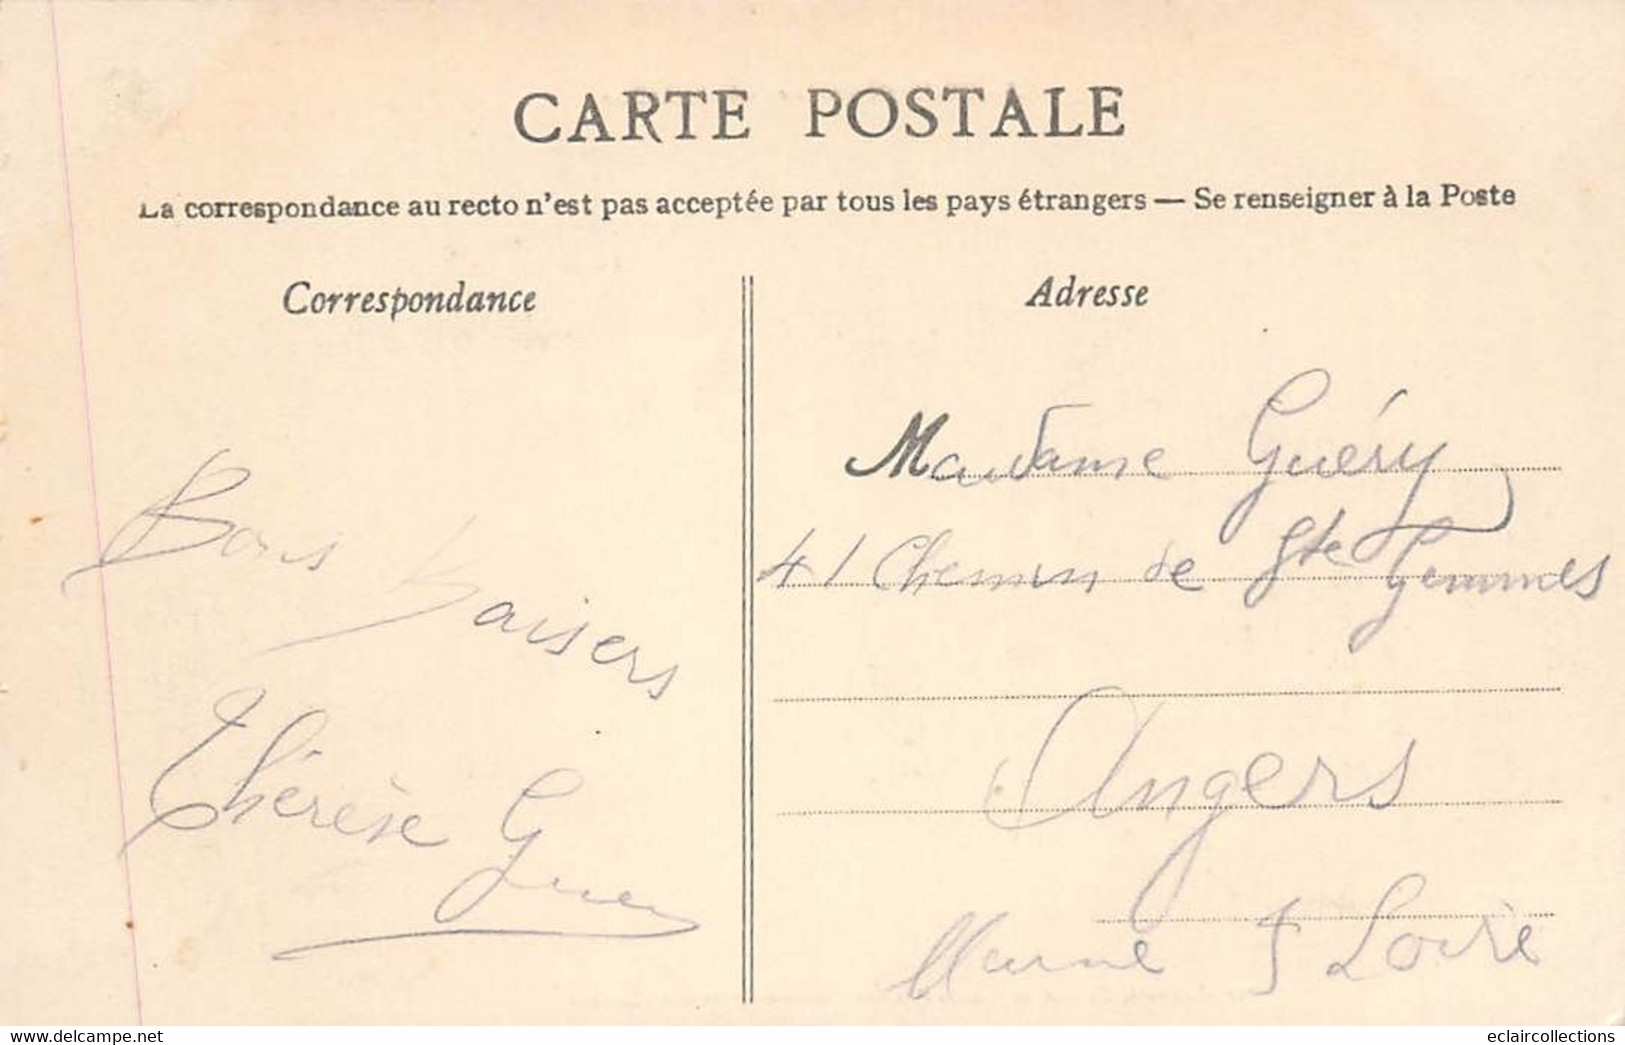 CARTE POSTALE
La correspondance au recto n'est pas acceptée par tous les pays étrangers — Se renseigner à la Poste
Correspondance
Bons Baisers
Thérèse
Adresse
Madame Guéry
41 Chemin de Ste Gemmes
Angers
Maine & Loire
www.delcampe.net
eclaircollections